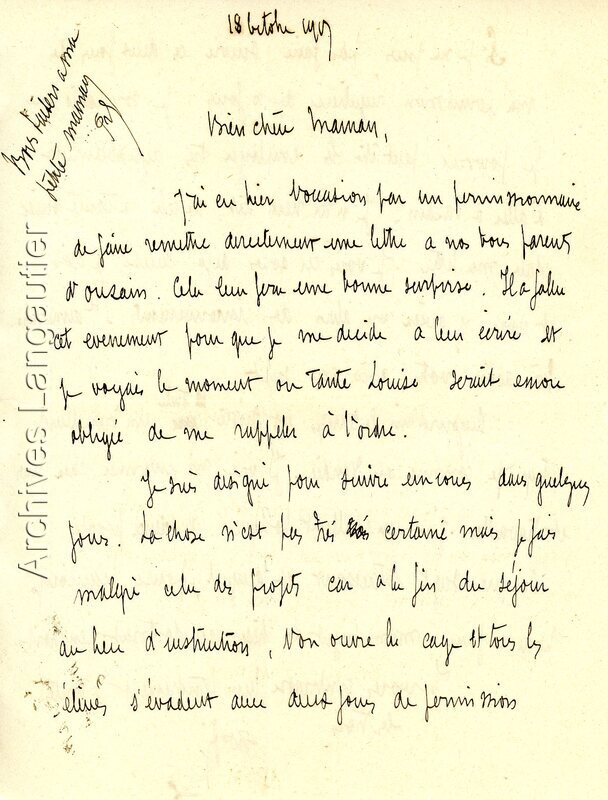 18 octobre 1917
Bons baisers a ma
petite maman
Bien chère Maman,
J'ai eu hier l'occasion par un permissionnaire
de faire remettre directement une lettre a nos bons parents
d'ousain. Cela leur fera une bonne surprise. Il a fallu
cet evenement pour que je me decide a leur écrire et
je voyais le moment ou Tante Louise serait encore
obligée de me rappeler à l'ordre.
Je suis designé pour suivre un cours dans quelques
jours. La chose n'est pas très certaine mais je fais
malgré cela des projets car a la fin du séjour
au lieu d'instruction, l'on ouvre la cage et tous les
élèves s'évadent avec deux jours de permission
Archives Langautier